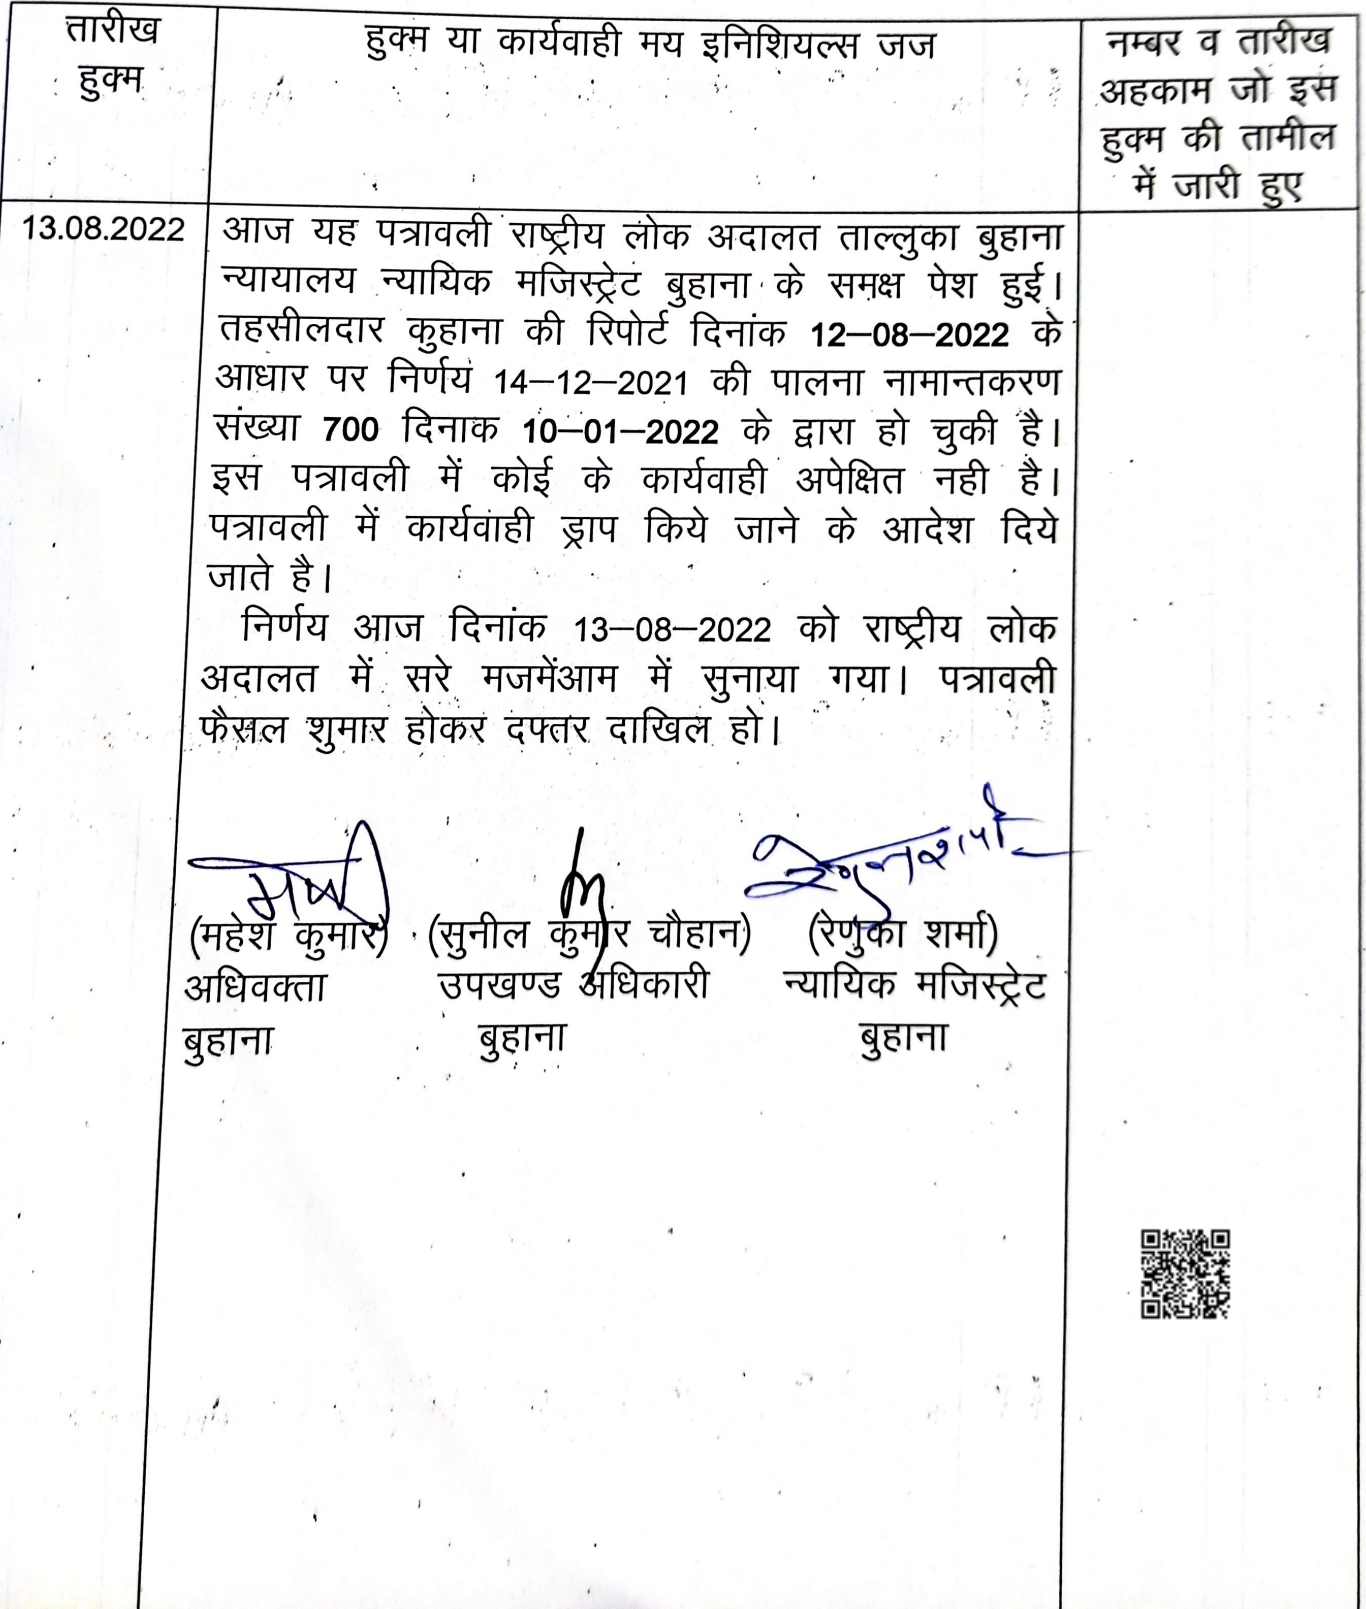 तारीख
हुक्म
हुक्म या कार्यवाही मय इनिशियल्स जज
नम्बर व तारीख
अहकाम जो इस
हुक्म की तामील
में जारी हुए
13.08.2022
आज यह पत्रावली राष्ट्रीय लोक अदालत ताल्लुका बुहाना
न्यायालय न्यायिक मजिस्ट्रेट बुहाना के समक्ष पेश हुई।
तहसीलदार कुहाना की रिपोर्ट दिनांक 12–08–2022 के
आधार पर निर्णय 14–12–2021 की पालना नामान्तकरण
संख्या 700 दिनाक 10–01–2022 के द्वारा हो चुकी है।
इस पत्रावली में कोई के कार्यवाही अपेक्षित नही है।
पत्रावली में कार्यवाही ड्राप किये जाने के आदेश दिये
जाते है।
निर्णय आज दिनांक 13–08–2022 को राष्ट्रीय लोक
अदालत में सरे मजमेंआम में सुनाया गया। पत्रावली
फैसल शुमार होकर दफ्तर दाखिल हो।
(महेश कुमार) (सुनील कुमार चौहान) (रेणुका शर्मा)
अधिवक्ता उपखण्ड अधिकारी न्यायिक मजिस्ट्रेट
बुहाना बुहाना बुहाना